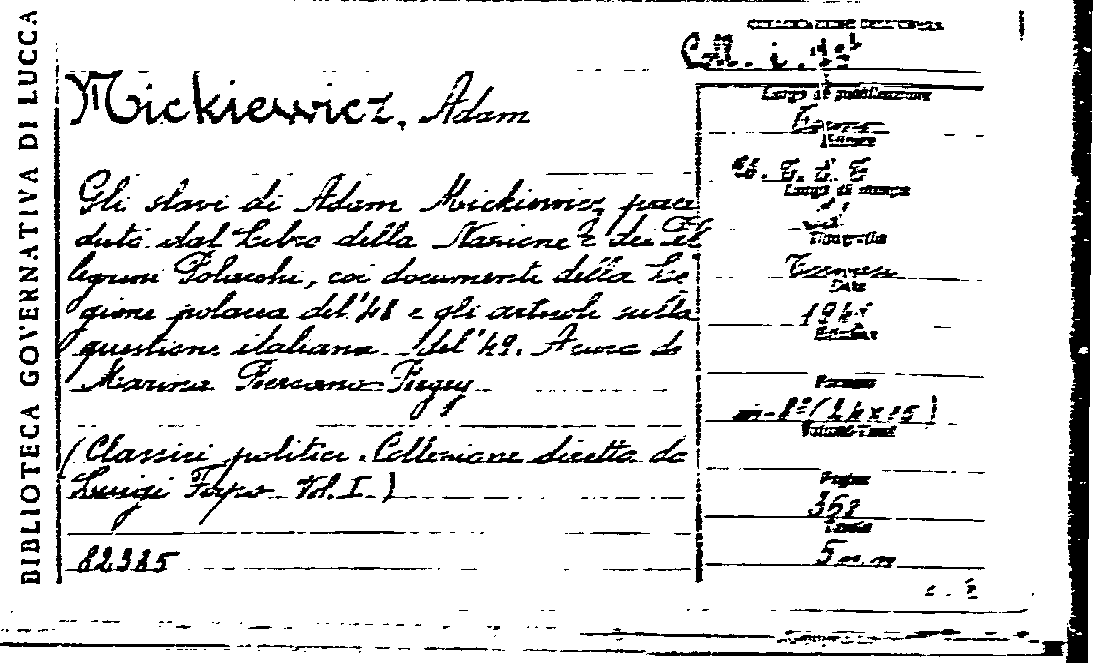 BIBLIOTECA GOVERNATIVA DI LUCCA
Mickiewicz, Adam
Gli slavi di Adam Mickiewicz prece
duto dal Libro della Nazione e dei Pel
legrini Polacchi, coi documenti della Le
gione polacca del '48 e gli articoli sulla
questione italiana del '49. A cura di
Marina Bersano Begey
(Classici politici. Collezione diretta da
Luigi Firpo Vol. I.)
82385
Coll. i.
Luogo di pubblicazione
U. T. E. T
Luogo di stampa
Tipografia
Data
Formato
in-8° (24x15)
Pagine
368
Tavole
5